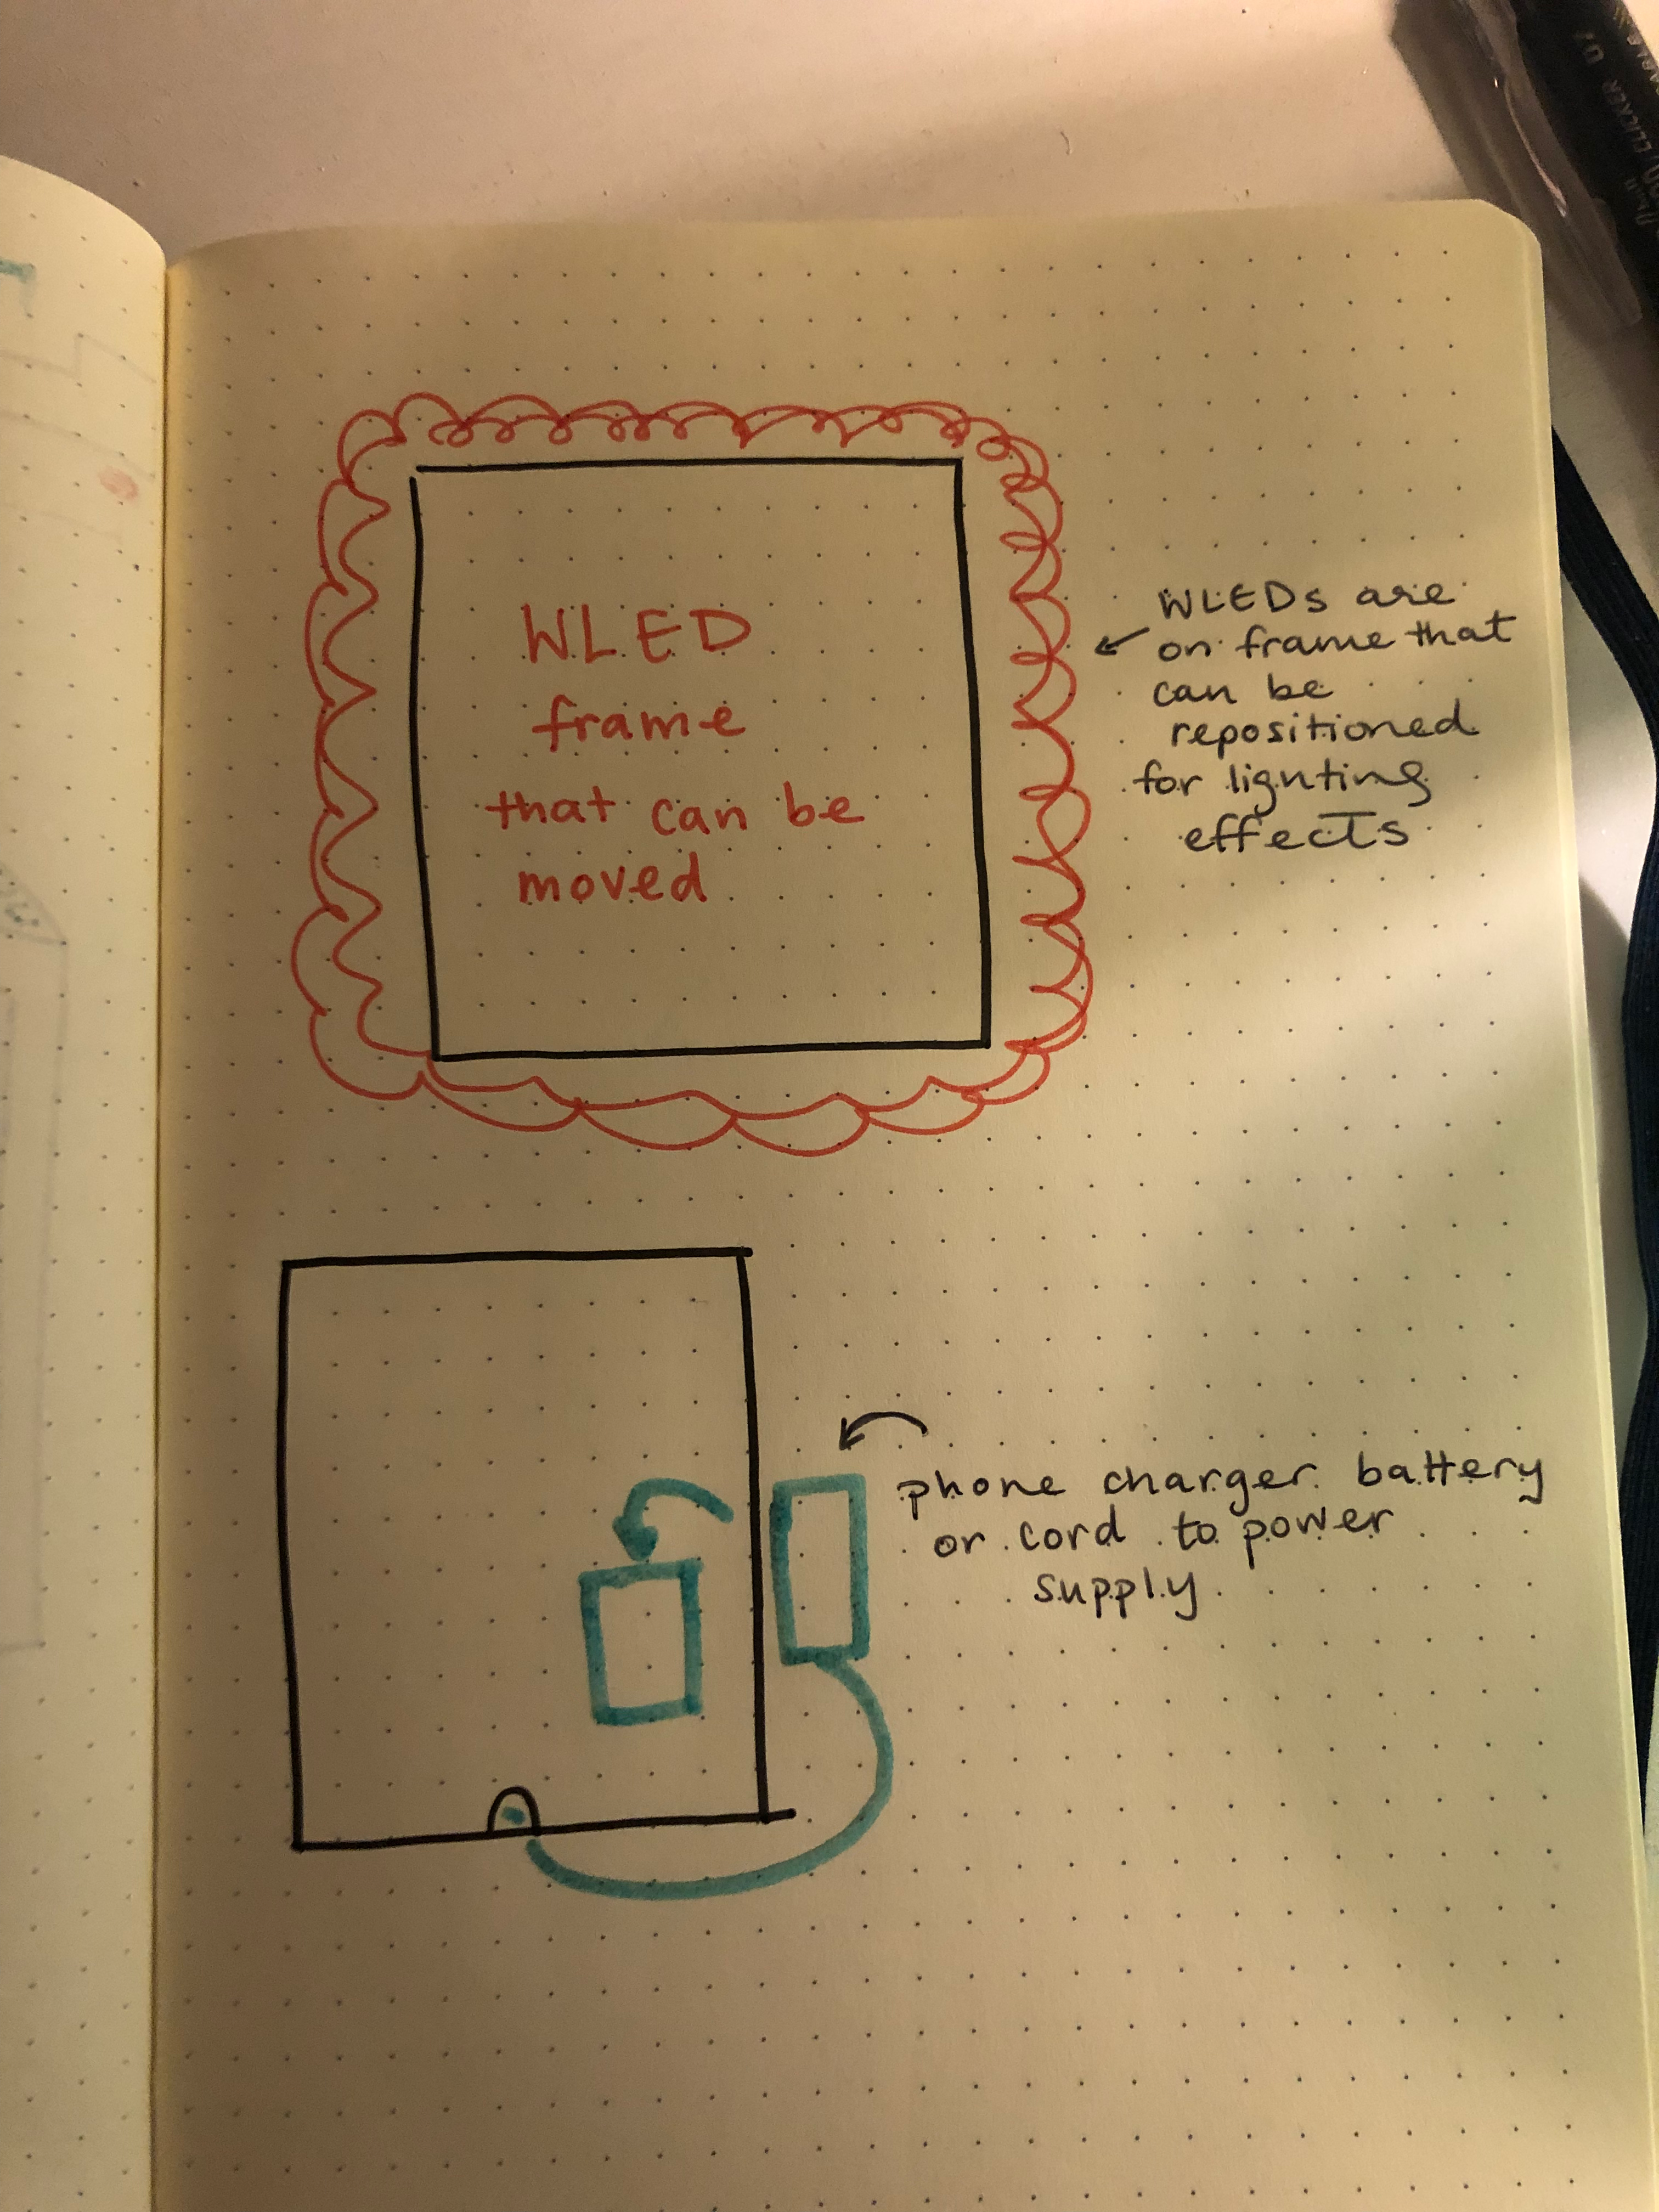 WLED
frame
that can be
moved
WLEDs are
on frame that
can be
repositioned
for lighting
effects
phone charger battery
or cord to power
supply
CLICKER 07